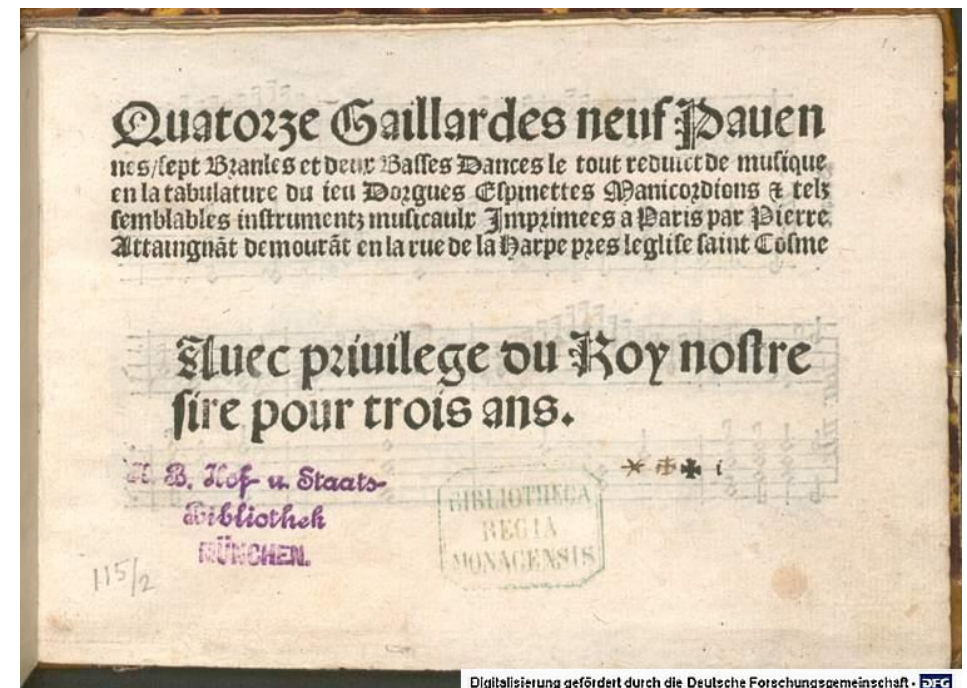 1.
Quatorze Gaillardes neuf Pauen
nes/sept Branles et deux Basses Dances le tout reduict de musique
en la tabulature du ieu Dorgues Espinettes Manicordions & telz
semblables instrumentz musicaulx Imprimees a Paris par Pierre
Attaingnãt demourãt en la rue de la Harpe pres leglise saint Cosme
Auec priuilege du Roy nostre
sire pour trois ans.
i
K. B. Hof- u. Staats-
Bibliothek
MÜNCHEN.
BIBLIOTHECA
REGIA
MONACENSIS
115/2
Digitalisierung gefördert durch die Deutsche Forschungsgemeinschaft - DFG